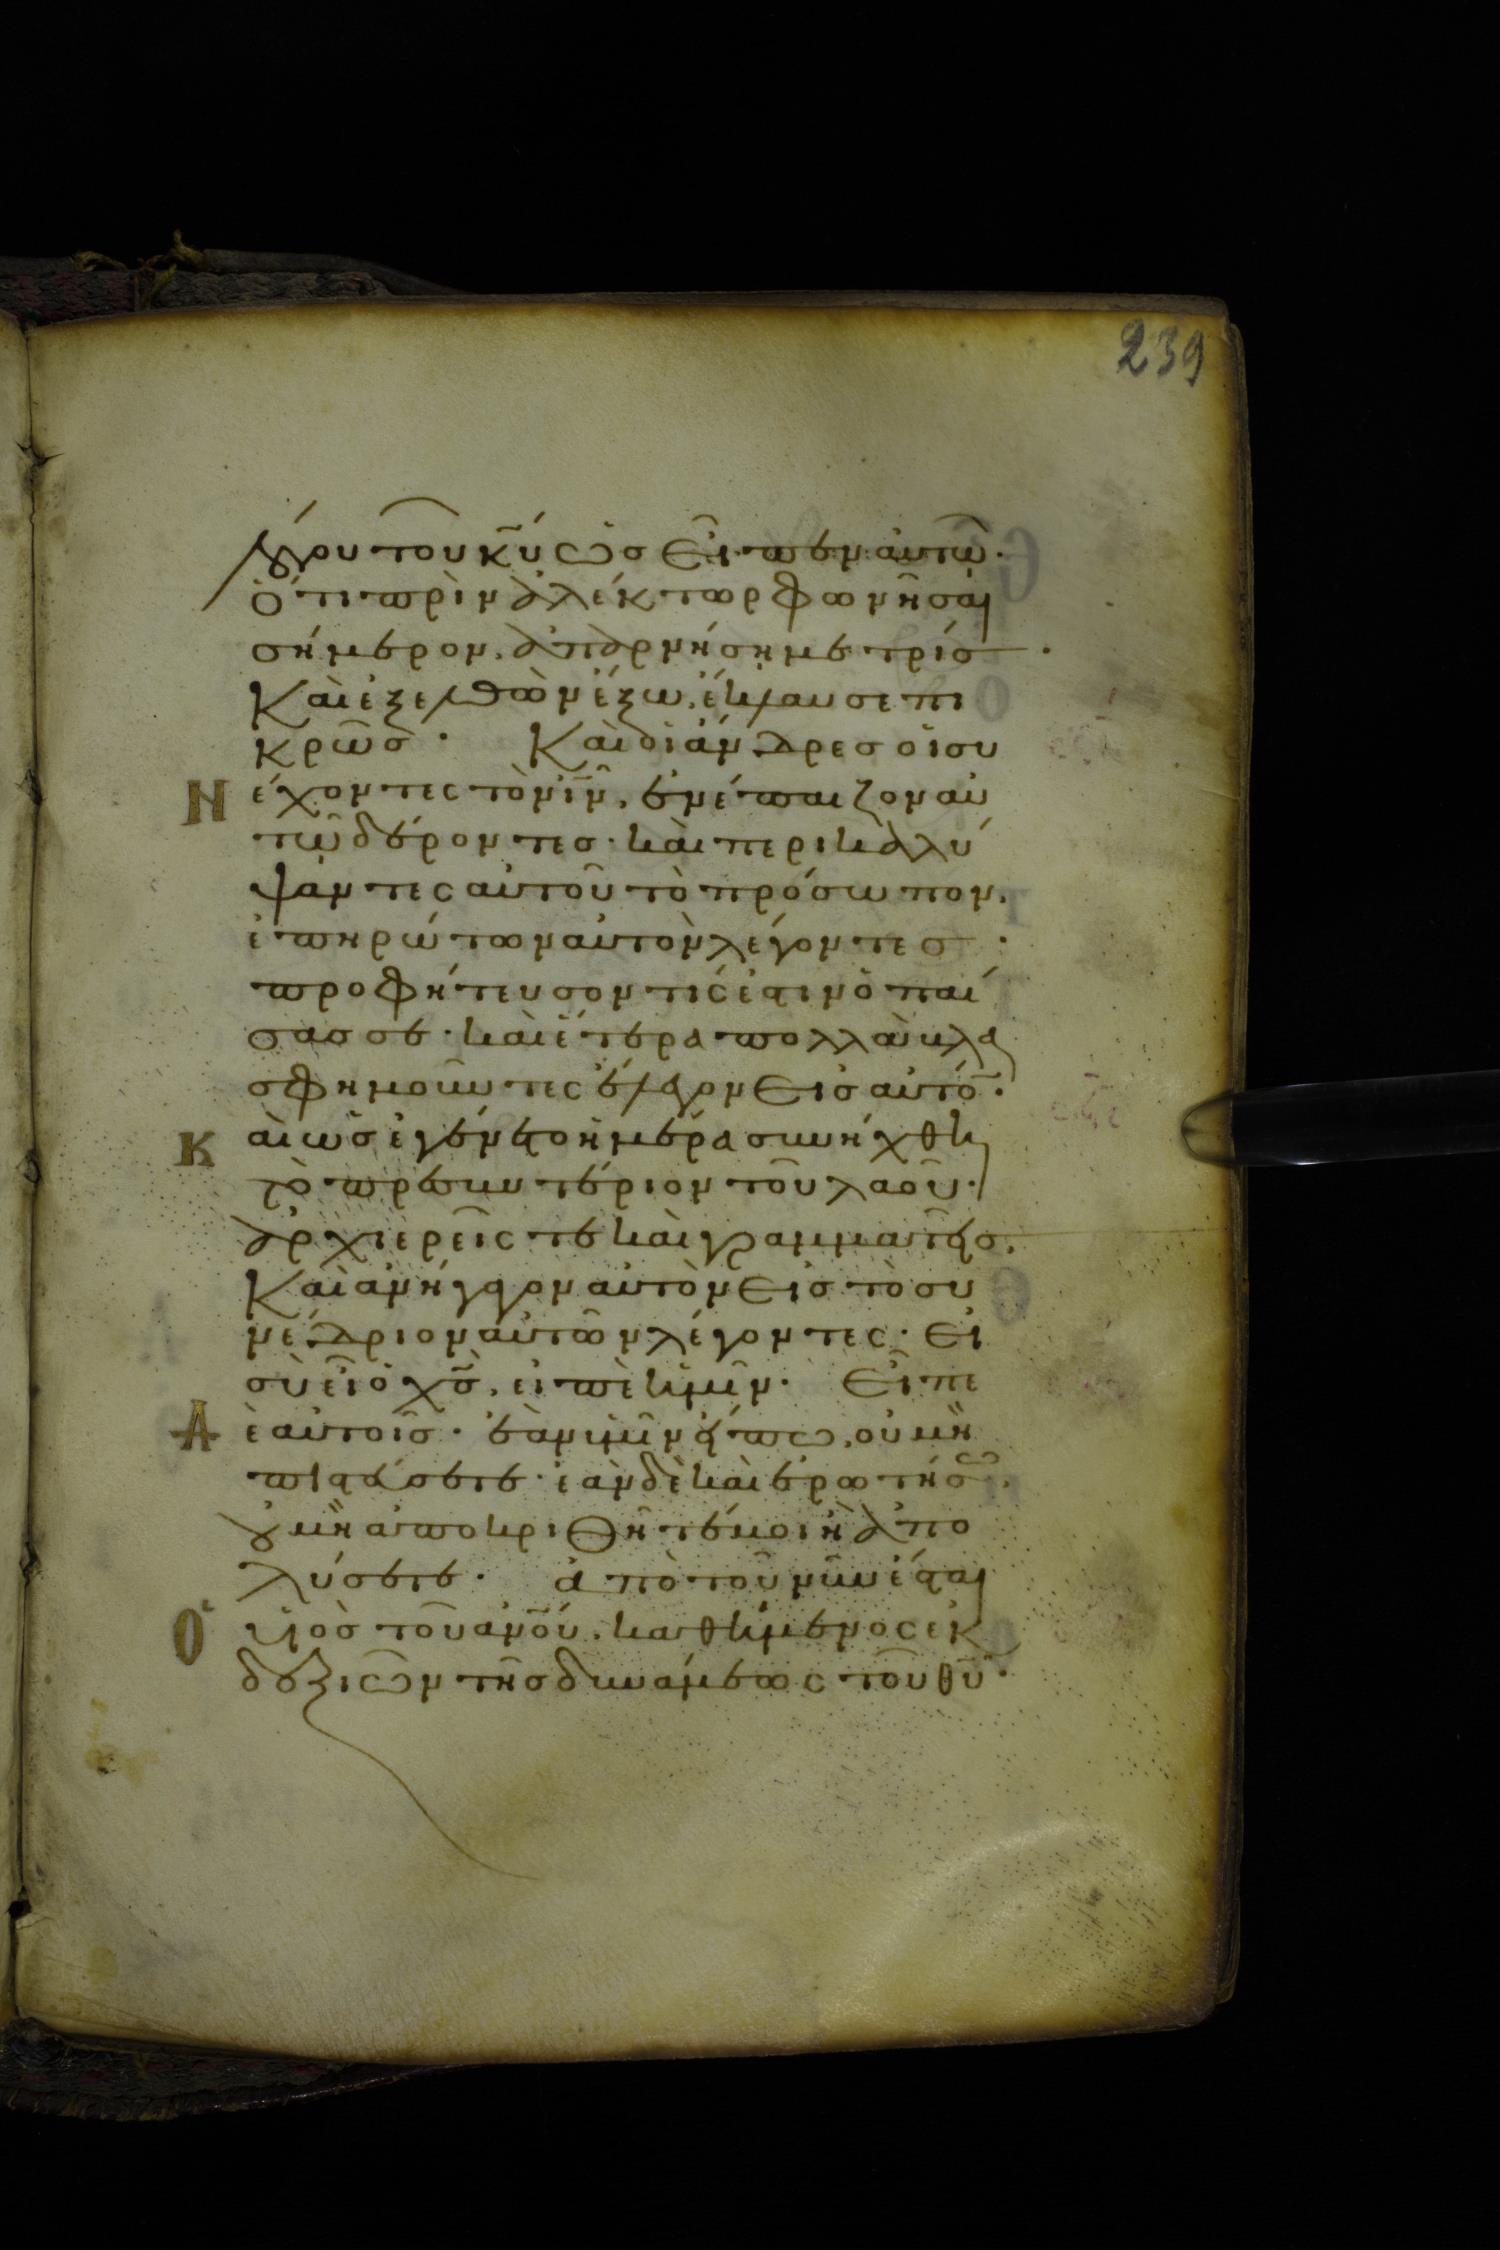 239
λόγου τοῦ κ̅υ̅ ὡς εἶπεν αὐτῶ·
ὅτι πρὶν ἀλέκτωρ φωνῆσαι
σήμερον, ἀπαρνήση με τρίσ·
Καὶ ἐξελθὼν ἔξω, ἔκλαυσε πι
κρῶσ· Καὶ οἱ ἄνδρεσ οἱ συ
Ν έχοντες τὸν ι̅ν̅, ἐνέπαιζον αὐ
τῶ δέροντεσ· καὶ περικαλύ
ψαντες αὐτοῦ τὸ πρόσωπον,
ἐπηρώτων αὐτὸν λέγοντεσ·
προφήτευσον τίς ἐστιν ὁ παί
σασ σε· καὶ ἕτερα πολλὰ βλα
σφημοῦντες ἔλεγον εἰσ αὐτό̅·
Κ αὶ ὡσ ἐγένετο ἡμέρα συνήχθη
τὸ πρεσβυτέριον τοῦ λαοῦ·
ἀρχιερεῖς τε καὶ γραμματεῖσ,
Καὶ ἀνήγαγον αὐτὸν εἰσ τὸ συ
νέδριον αὐτῶν λέγοντες· Εἰ
σὺ εἶ ὁ χ̅σ̅, εἰπὲ ἡμῖν· Εἶπε
Δ ὲ αὐτοῖσ· ἐὰν ὑμῖν εἴπω, οὐ μὴ
πιστεύσετε· ἐὰν δὲ καὶ ἐρωτήσω,
οὐ μὴ ἀποκριθῆτέ μοι ἢ ἀπο
λύσετε· ἀπὸ τοῦ νῦν ἔσται
Ὁ υἱὸσ τοῦ α̅ν̅ο̅υ̅, καθήμενος ἐκ
δεξιῶν τῆσ δυνάμεως τοῦ θ̅υ̅·